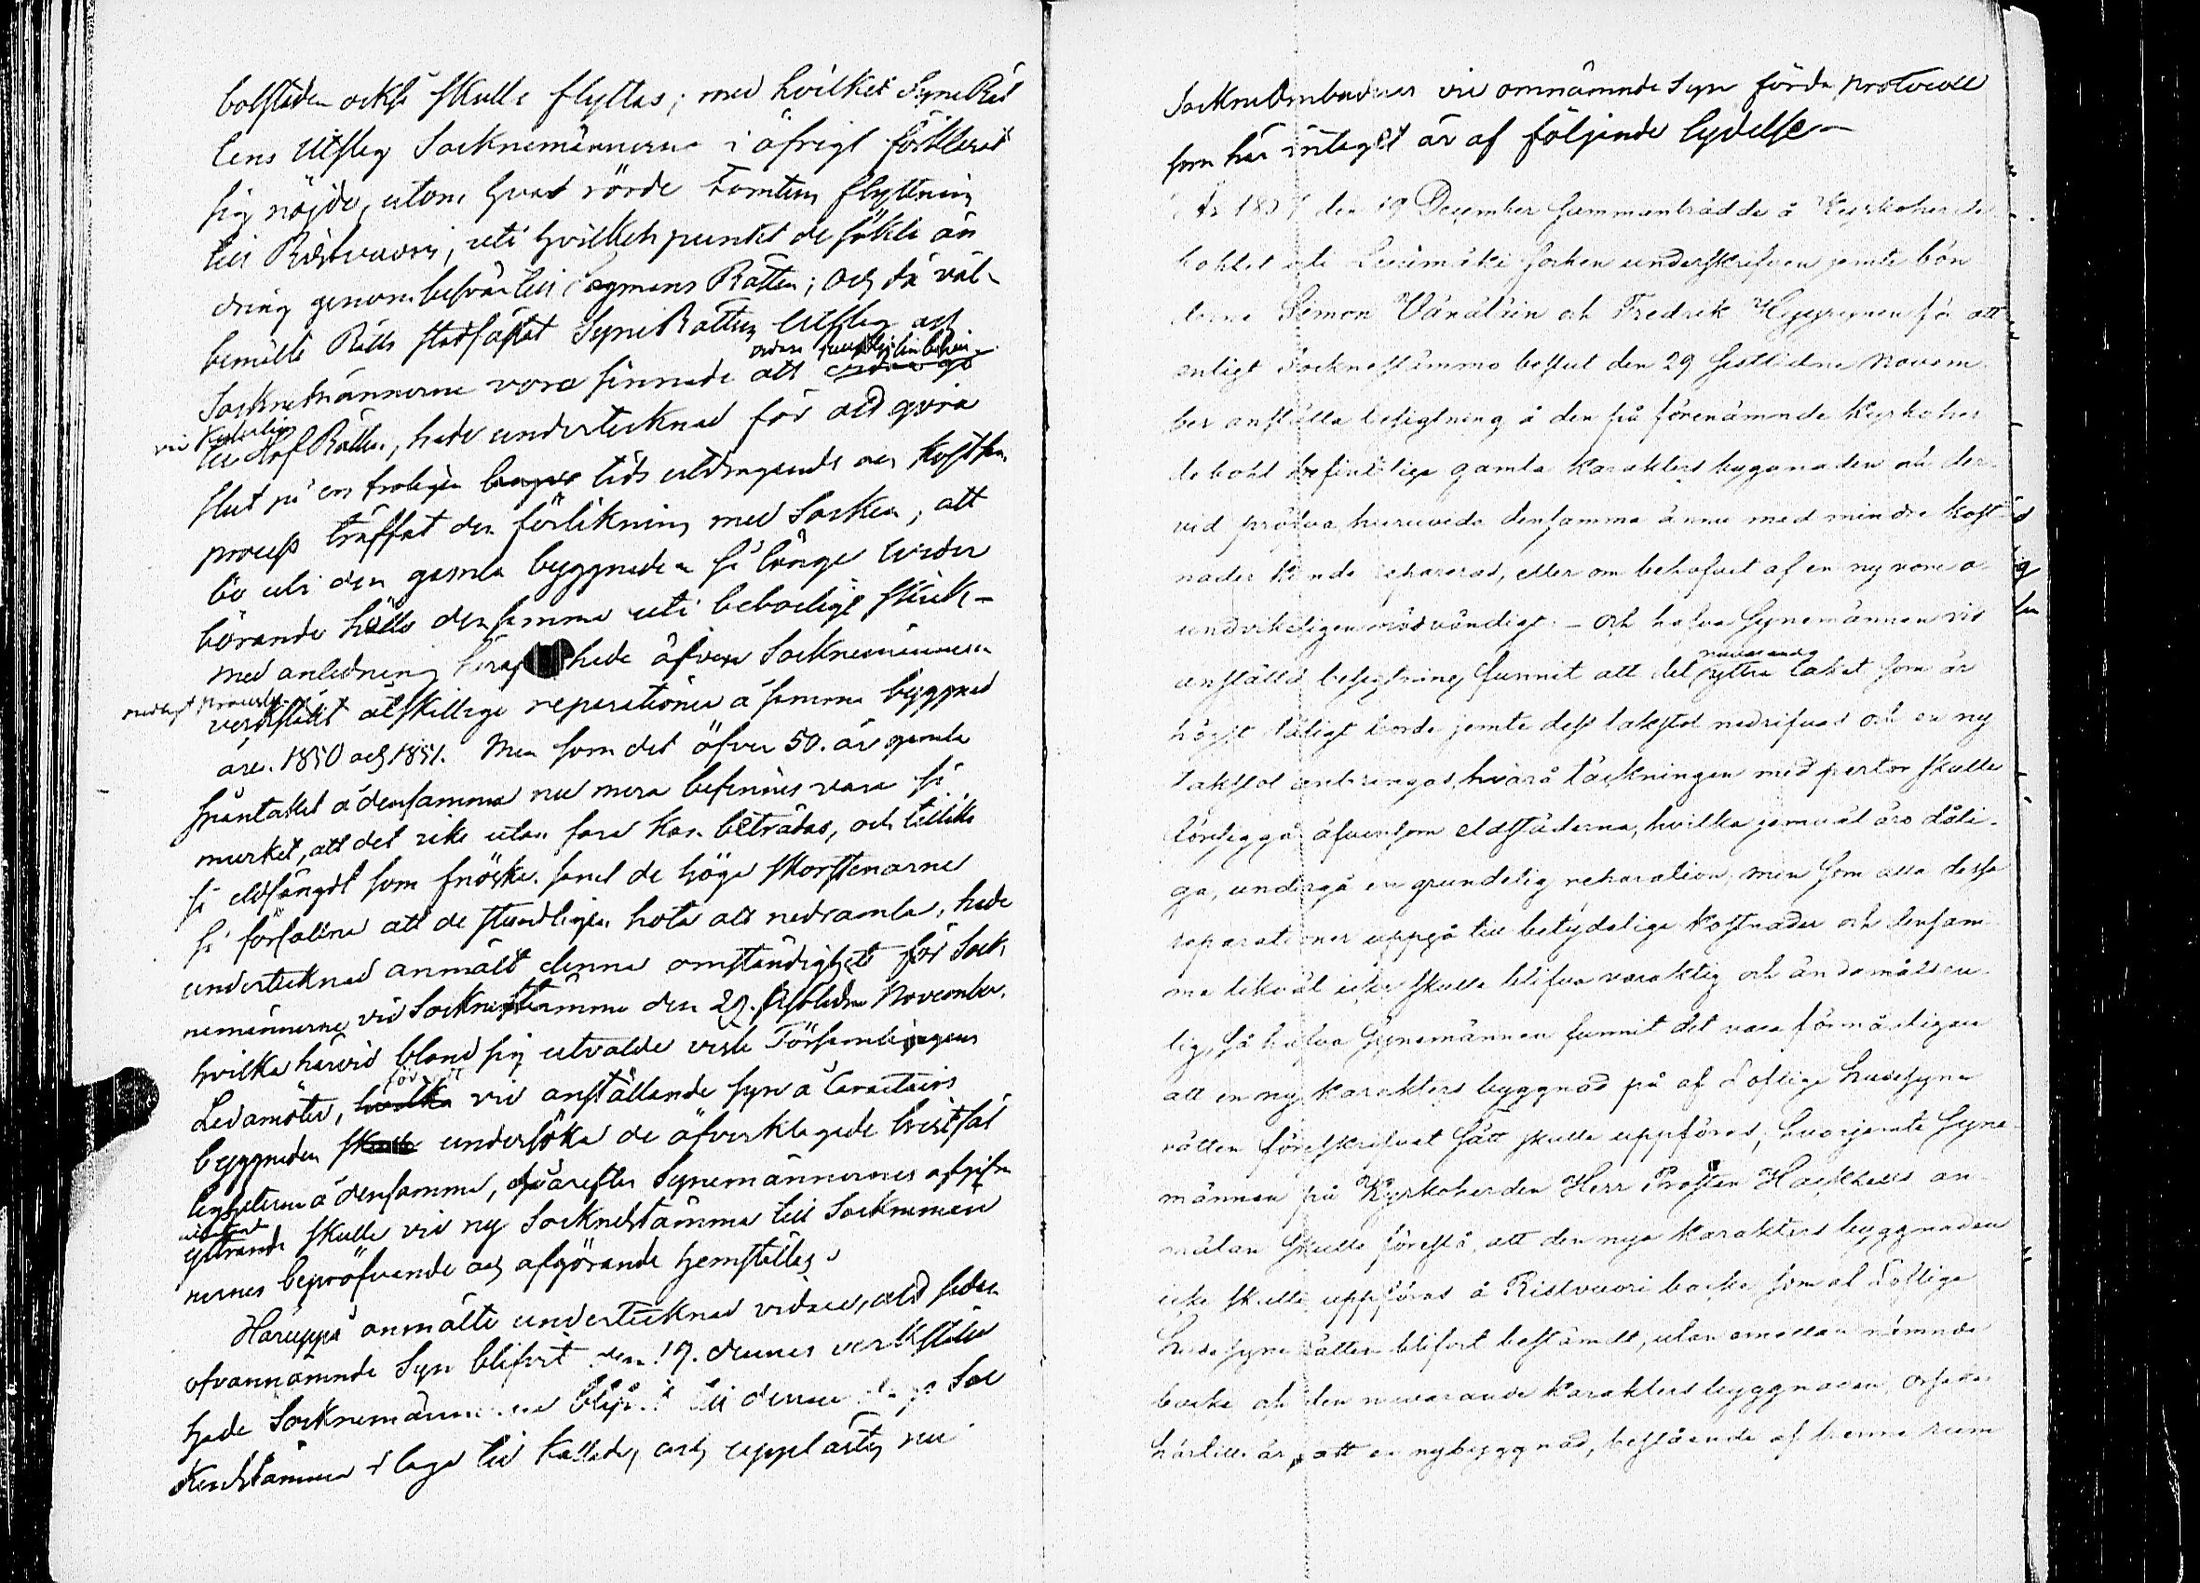 bolstaden också skulle flyttas; med hvilket Syne Rät
tens Utslag Socknemännerne i öfrigt förklarat
sig nöjde, utom hvad rörde tomtens flyttning
till Ristvuori, uti hvilken punkt de sökte än
dring genom besvär till Lagmans Rätten; och då väl-
bemälte Rätt stadfästat Syne Rättens Utslag och
Socknemännerne voro sinnade att
till Hof Rätten, hade undertecknad för att göra
slut på en troligen längre tids utdragande och kostsam
process träffat den förlikning med Socken, att
bo uti den gamla byggnaden så länge
börande hålla densamma uti beboeligt skick-
med anledning hade äfven Socknemännerne
verkstält åtskillige reparationer å samma byggnad
åren 1850 och 1851. Men som det öfver 50. år gamla
spåntaket å densamma nu mera befinnes vara så
murket, att det icke utan fara kan beträdas, och tillika
så eldfängdt som fnöske samt de höga skorstenarne
så förfallna att de stundligen hota att nedramla, hade
undertecknad anmält denna omständighet för Sock
nemännerne vid Sockne stämma den 29. sistledne November,
hvilka härvid bland sig utvalde visse Församlingens
Ledamöter, för att vid anställande syn å Caractairs
byggnaden undersöka de öfverklagade bristfäl
ligheterna å densamma, hvarefter Synemännernes afgifne
utlåtande skulle vid ny Sockne Stämma till Socknemän
nernes bepröfvande och afgörande hemställas.
Häruppå anmälte undertecknad vidare, att sedan
ofvannämnde Syn blifvit den 19. dennes verkstäld
hade Socknemännerne blifvit till denna dag Soc
kne Stämma i laga tid kallade, och upplästes nu
Sockne Ombudens vid omnämnde Syn förda protocoll
som här intaget är af följande lydelse-
År 1857 den 19 December sammanträdde å Kyrkoherde
bohlet uti Luumäki socken underskrifven jemte bön
derne Simon Vänäläin och Fredrik Hyyrynen för att
enligt Socknestämmo beslut den 29 sistlidne Novem
ber anställa besigtning å den på förenämnde Kyrkoher
de bohl befintliga gamla karakters byggnaden och der
vid pröfva huruvida densamma ännu med mindre kost
nader kunde repareras, eller om behofvet af en ny vore o
undvikeligen nödvändigt. - och hafva Synemännen vid
anställd besigtning funnit att det nuvarande yttre taket som är
högst dåligt borde jemte dess takstol nedrifvas och en ny
takstol anbringas, hvarå täckningen med pertor skulle
försiggå äfvensom eldstäderna, hvilka jemväl äro dåli-
ga, undergå en grundelig reparation, men som alla dessa
reparationer uppgå till betydeliga kostnader och densam
ma likväl icke skulle blifva varaktig och ändamålsen
lig, så hafva Synemännen funnit det vara förmånligare
att en ny karakters byggnad på af Loflige husesyne
rätten föreskrifvet sätt skulle uppföras; hvarjemte Syne
männen på Kyrkoherden Herr Prosten Hackzells an
mälan skulle föreslå, att den nya karakters byggnaden
icke skulle uppföras å Ristvuori backe som af Loflige
husesyne rätten blifvit bestämdt, utan emellan nämnde
backe och den nuvarande karakters byggnaden, orsaken
härtill är, att en nybyggnad, bestående af trenne rum